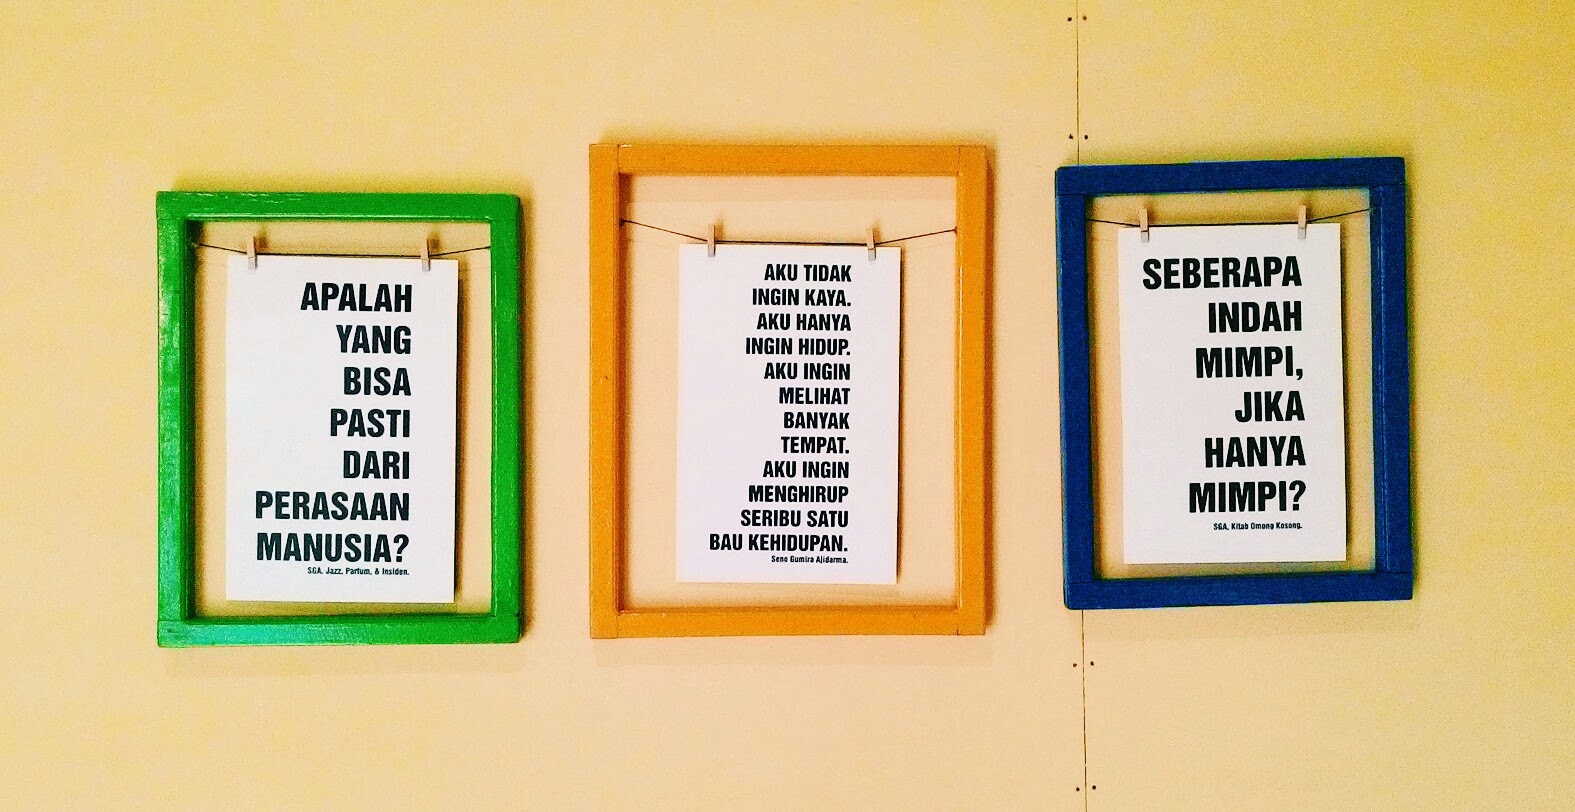 APALAH
YANG
BISA
PASTI
DARI
PERASAAN
MANUSIA?
SGA, Jazz, Parfum, & Insiden.
AKU TIDAK
INGIN KAYA.
AKU HANYA
INGIN HIDUP.
AKU INGIN
MELIHAT
BANYAK
TEMPAT.
AKU INGIN
MENGHIRUP
SERIBU SATU
BAU KEHIDUPAN.
Seno Gumira Ajidarma.
SEBERAPA
INDAH
MIMPI,
JIKA
HANYA
MIMPI?
SGA, Kitab Omong Kosong.